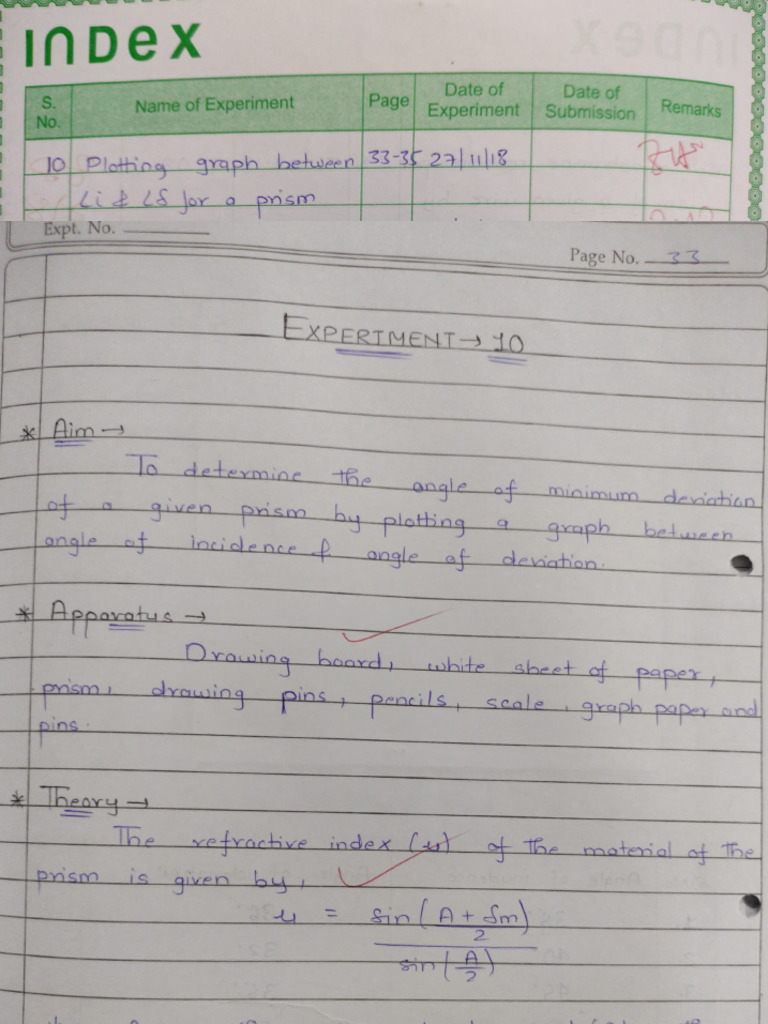 INDEX
S. No. Name of Experiment Page Date of Experiment Date of Submission Remarks
10 Plotting graph between 33-35 27/11/18
∠i & ∠δ for a prism
Expt. No.
Page No. 33
EXPERIMENT → 10
* Aim →
To determine the angle of minimum deviation
of a given prism by plotting a graph between
angle of incidence & angle of deviation.
* Apparatus →
Drawing board, white sheet of paper,
prism, drawing pins, pencils, scale, graph paper and
pins.
* Theory →
The refractive index (μ) of the material of the
prism is given by,
μ = sin(A + δm)
2
sin(A/2)